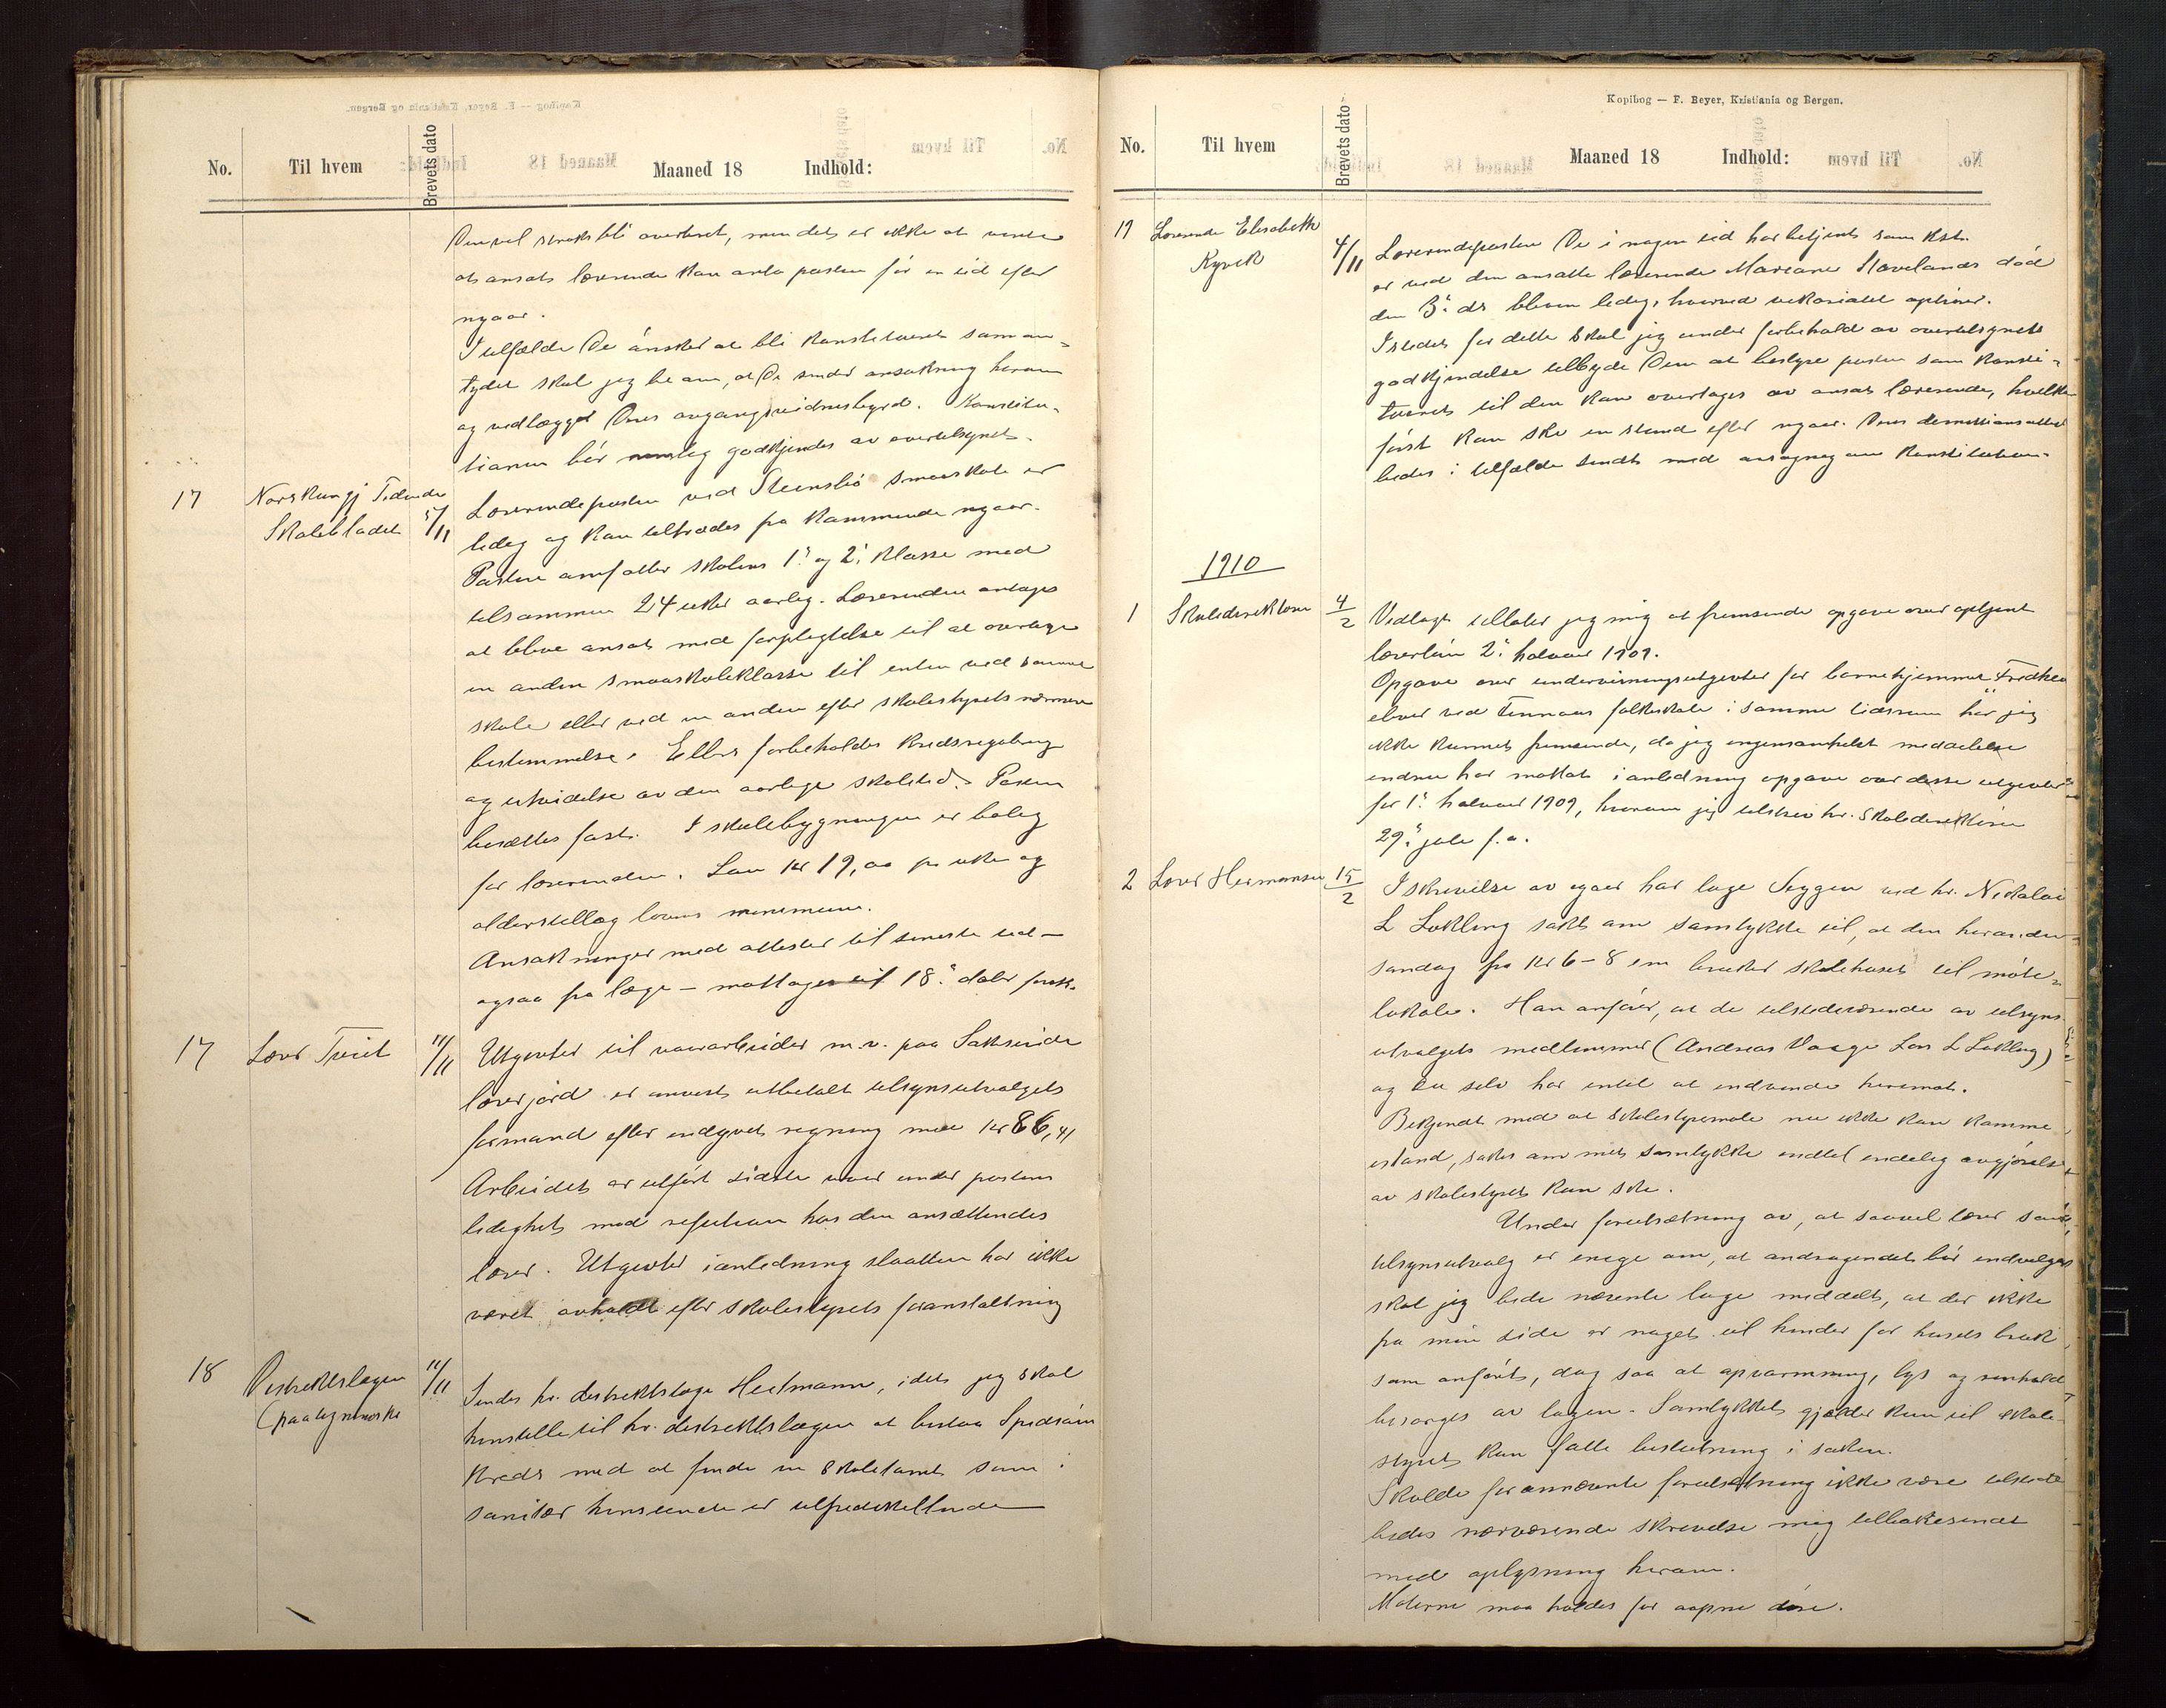 No. Til hvem Brevets dato Maaned 18 Indhold:
Dem vil straks bli overlært, men det er ikke at vente
at ansat lærerinde kan anta posten før en tid efter
nyaar.
I tilfælde De ønsker at bli konstitueret som an-
tydet skal jeg be om, at De sender ansøkning herom
og vedlægger Deres avgangsvidnesbyrd. Konstitu-
tionen bør nemlig godkjendes av overtilsynet.
17 Norsk ungj Tidende
Skolebladet 5/11 Lærerindeposten ved Steinsbø smaaskole er
ledig og kan tiltrædes fra kommende nyaar.
Posten omfatter skolens 1.ste og 2. klasse med
tilsammen 24 uker aarlig. Lærerinden antages
at bleve ansat med forpligtelse til at overtage
en anden smaaskoleklasse til enten ved samme
skole eller ved en anden efter skolestyrets nærmere
bestemmelse. Ellers forbeholdes kredsregulering
og utvidelse av den aarlige skoletid. Posten
besættes fast. I skolebygningen er bolig
for lærerinden. Løn kr 19,00 pr uke og
alderstillæg lovens minimum.
Ansøkninger med attester til seneste tid —
ogsaa fra læge — mottages til 18. dcbr førstk.
17 Lærer Tveit 11/11 Utgivter til vaararbeider m.v. paa Sakseide
lærerjord er anvist utbetalt tilsynsutvalgets
formand efter indgivet regning med kr 86,41
Arbeidet er utført sidste vaar under postens
ledighet med refusion hos den ansættendes
lærer. Utgivter i anledning slaatten har ikke
været avholdt efter skolestyrets foranstaltning
18 Distriktslægen
(paategning 11/11 Sendes hr. distriktslæge Heitmann, idet jeg skal
henstille til hr. distriktslægen at bistaa Spidsøen
kreds med at finde en skoletomt som i
sanitær henseende er tilfredsstillende
Kopibog — F. Beyer, Kristiania og Bergen.
No. Til hvem Brevets dato Maaned 18 Indhold:
19 Lærerinde Elisabeth
Kyvik 4/11 Lærerindeposten De i nogen tid har betjent som vkst.
er ved den ansatte lærerinde Mariane Stavelands død
den 3. ds bleven ledig, hvorved vikariatet ophører.
Istedet for dette skal jeg under forbehold av overtilsynets
godkjendelse tilbyde Dem at bestyre posten som konsti-
tueret til den kan overtages av ansat lærerinde, hvilket
først kan ske en stund efter nyaar. Deres demissionsattest
bedes i tilfælde sendt med ansøgning om konstitution.
1910
1 Skoledirektøren 4/2 Vedlagt tillater jeg mig at fremsende opgave over optjent
lærerløn 2. halvaar 1909.
Opgave over undervisningsutgivter for barnehjemmet Fredheims
elever ved Finnaas folkeskole i samme tidsrum har jeg
ikke kunnet fremsende, da jeg ingensomhelst meddelelse
endnu har mottat i anledning opgave over disse utgivter
for 1. halvaar 1909, hvorom jeg tilskrev hr. Skoledirektøren
29. juli f.a.
2 Lærer Hermansen 15/2 I skrivelse av igaar har loge Seggen ved hr. Nikolai
L Løkling søkt om samtykke til, at den hveranden
søndag fra kl 6-8 em bruker skolehuset til møte-
lokale. Han anfører, at de tilstedeværende av tilsyns-
utvalgets medlemmer (Andreas Vaage Lars L Løkling)
og De selv har intet at indvende herimot.
Bekjendt med at skolestyremøte nu ikke kan komme
istand, søkes om mit samtykke indtil endelig avgjørelse
av skolestyret kan ske.
Under forutsætning av, at saavel lærer som
tilsynsutvalg er enige om, at andragendet bør indvilges
skal jeg bede nævnte loge meddelt, at der ikke
fra min side er noget til hinder for husets bruk
som anført, dog saa at opvarmning, lys og renhold
besørges av logen. Samtykket gjælder kun til skole-
styret kan fatte beslutning i saken.
Skulde forannævnte forutsætning ikke være tilstede
bedes nærværende skrivelse mig tilbakesendt
med oplysning herom.
Møterne maa holdes for aapne døre.